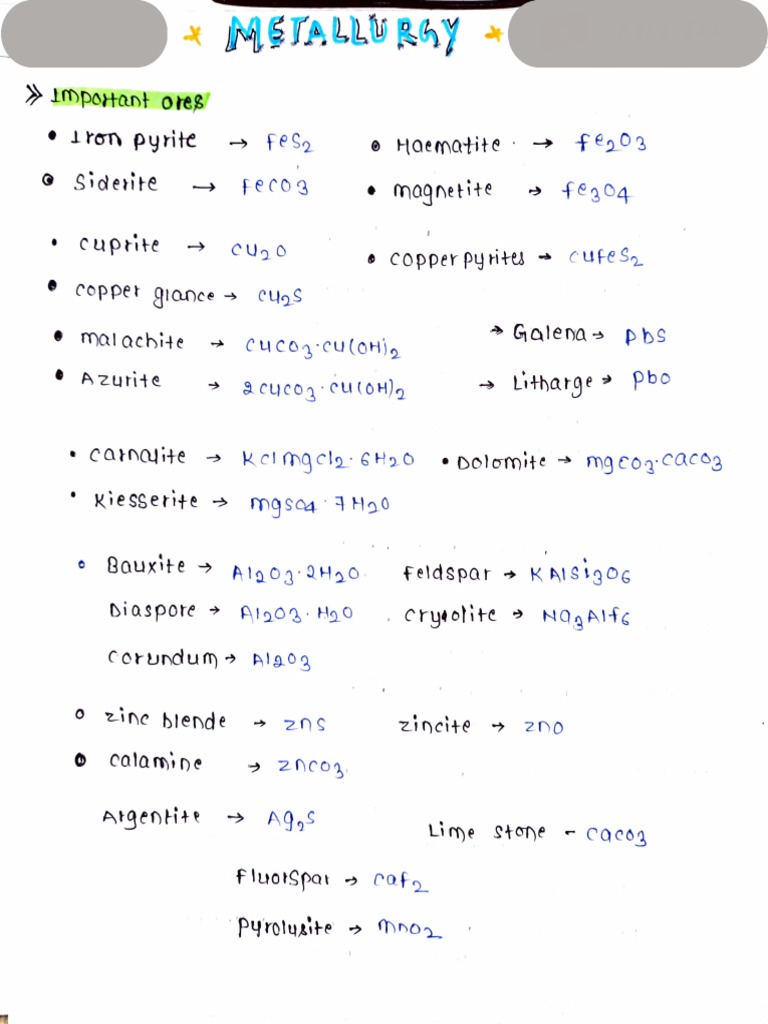 METALLURGY
Important ores
• Iron pyrite → FeS2 • Haematite → Fe2O3
• Siderite → FeCO3 • magnetite → Fe3O4
• cuprite → Cu2O • copper pyrites → CuFeS2
• copper glance → Cu2S
• malachite → CuCO3.Cu(OH)2 → Galena → PbS
• Azurite → 2CuCO3.Cu(OH)2 → Litharge → PbO
• Carnalite → KClMgCl2.6H2O • Dolomite → MgCO3.CaCO3
• Kiesserite → MgSO4.7H2O
• Bauxite → Al2O3.2H2O Feldspar → KAlSi3O6
Diaspore → Al2O3.H2O Cryolite → Na3AlF6
Corundum → Al2O3
• zinc blende → ZnS zincite → ZnO
• calamine → ZnCO3
Argentite → Ag2S
Lime stone - CaCO3
Fluorspar → CaF2
Pyrolusite → MnO2